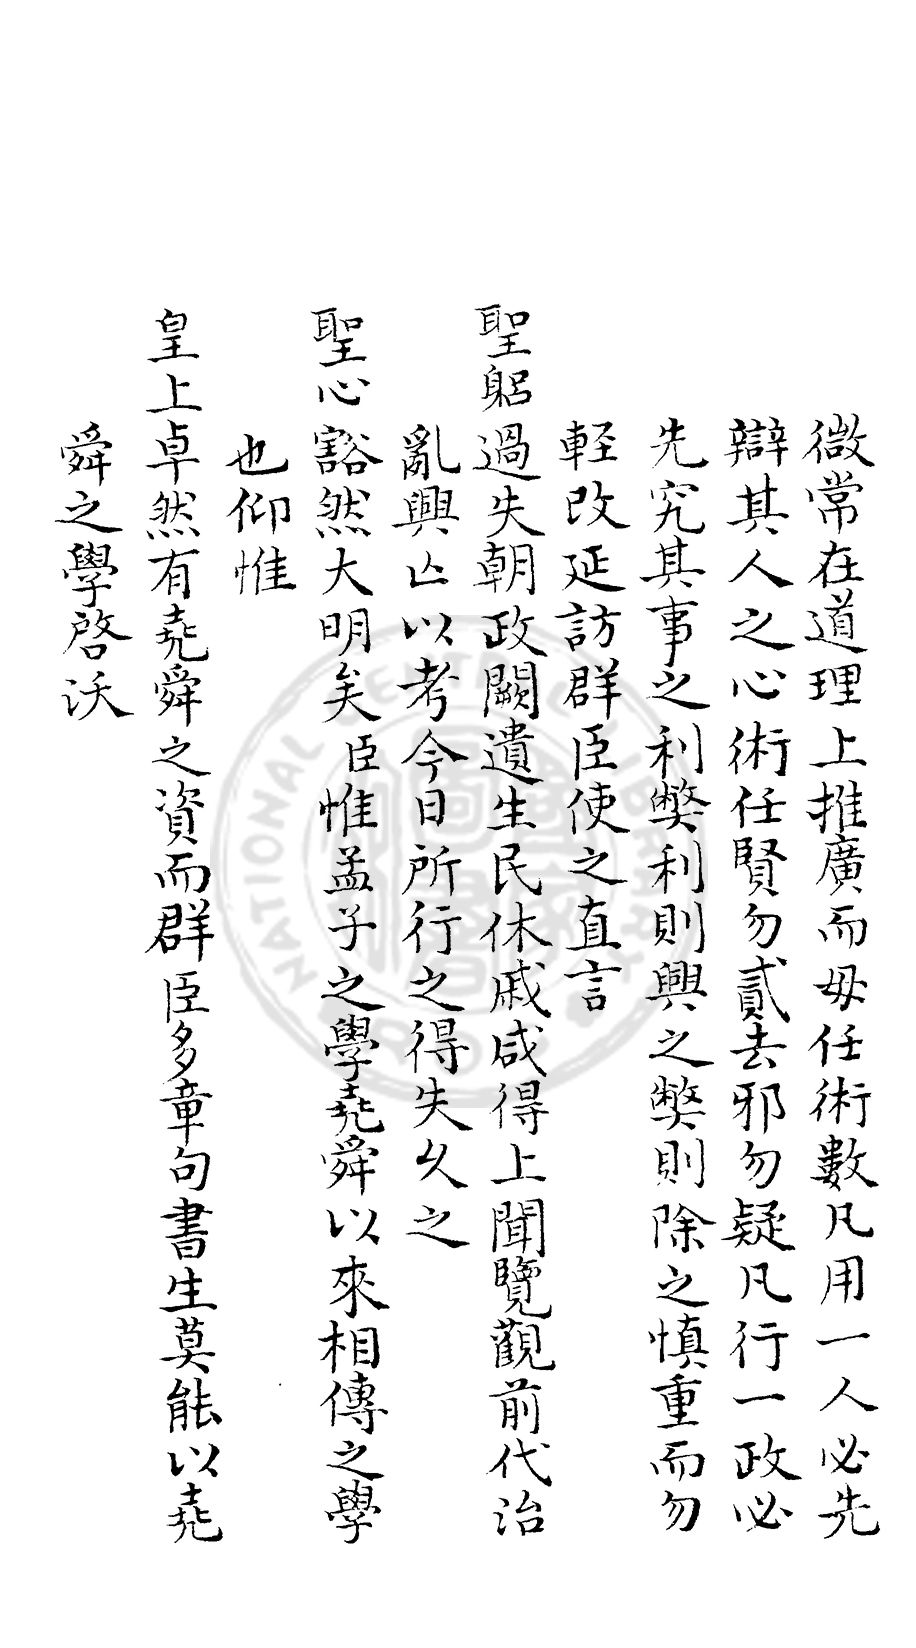 微常在道理上推廣而毋任術數凡用一人必先
辯其人之心術任賢勿貳去邪勿疑凡行一政必
先究其事之利弊利則興之弊則除之慎重而勿
輕改延訪群臣使之直言
聖躬過失朝政闕遺生民休戚咸得上聞覽觀前代治
亂興亾以考今日所行之得失久之
聖心豁然大明矣臣惟孟子之學堯舜以來相傳之學
也仰惟
皇上卓然有堯舜之資而群臣多章句書生莫能以堯
舜之學啓沃
NATIONAL CENTRAL LIBRARY